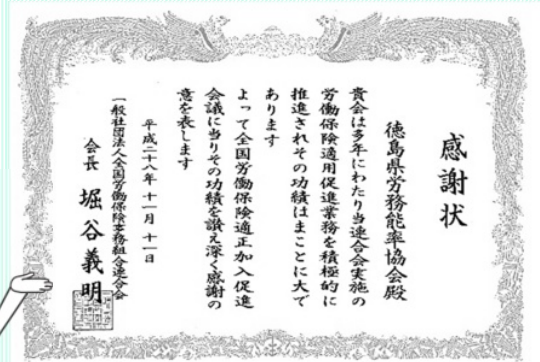 感謝状
徳島県労務能率協会殿
貴会は多年にわたり当連合会実施の
労働保険適用促進業務を積極的に
推進されその功績はまことに大で
あります
よって全国労働保険適正加入促進
会議に当りその功績を讃え深く感謝の
意を表します
平成二十八年十一月十一日
一般社団法人全国労働保険事務組合連合会
会長 堀谷義明